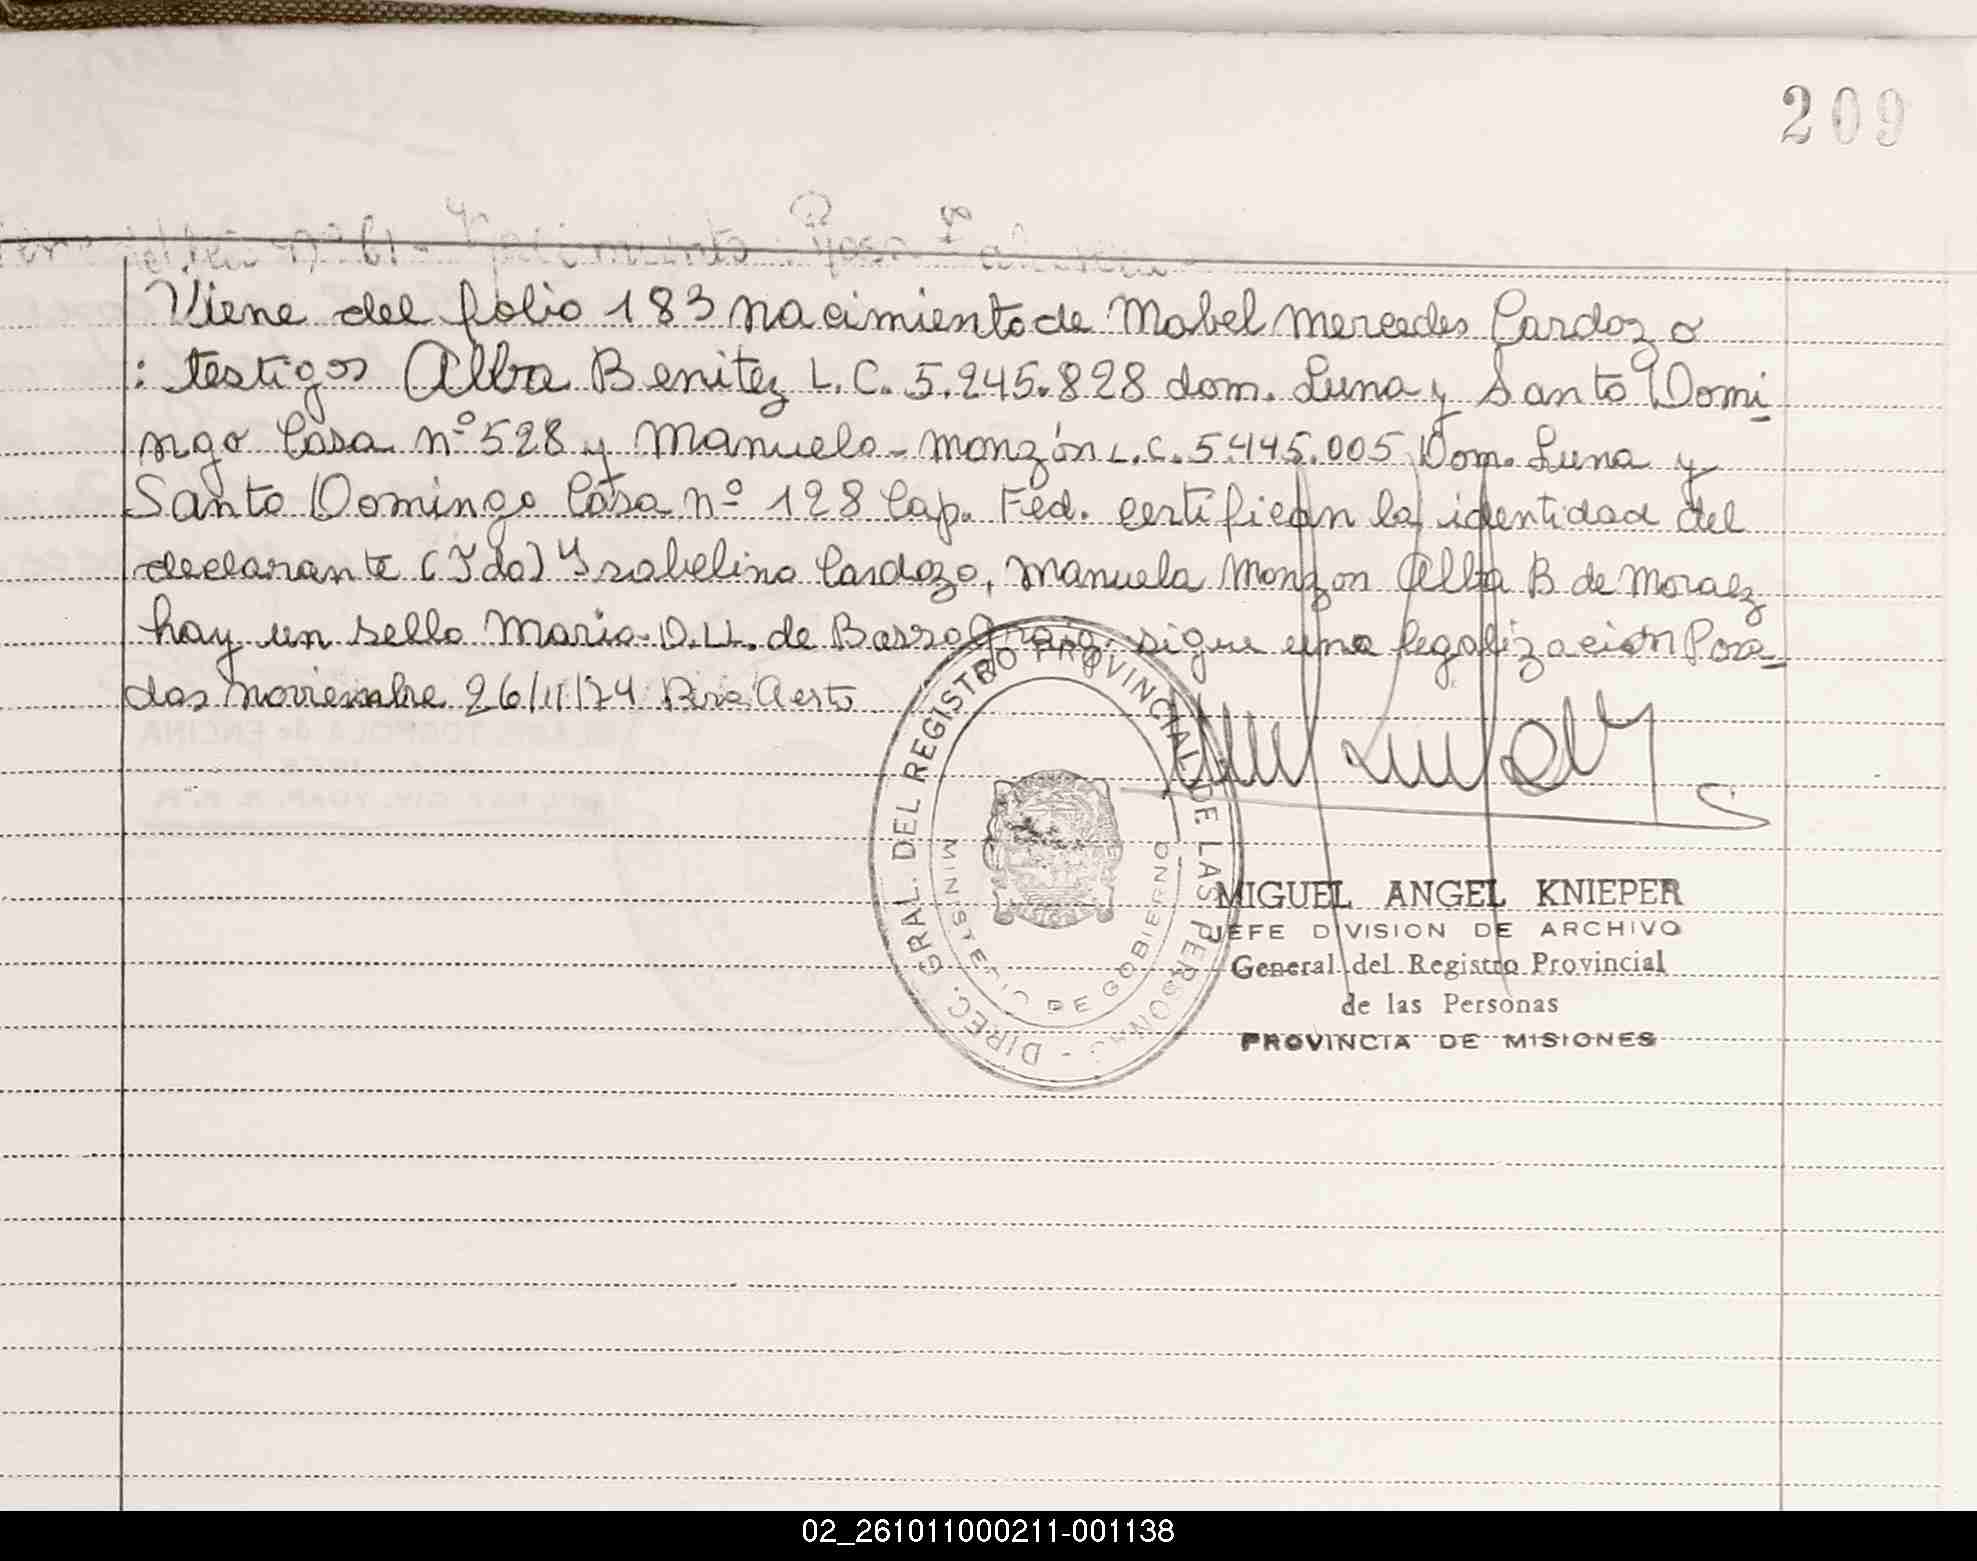 209
Viene del folio 183 nacimiento de Mabel Mercedes Cardozo
: testigos Alba Benitez L.C. 5.245.828 dom. Luna y Santo Domi-
ngo Casa nº 528 y Manuela - Monzón L.C. 5.445.005 Dom. Luna y
Santo Domingo Casa nº 128 Cap. Fed. certifican la identidad del
declarante (Fdo) Ysabelino Cardozo, Manuela Monzon Alba B de
hay un sello Maria D. LL. de Barro sigue una legalizacion Posa-
das noviembre 26/11/74
DIREC. GRAL. DEL REGISTRO PROVINCIAL DE LAS PERSONAS -
MINISTERIO DE GOBIERNO
MIGUEL ANGEL KNIEPER
JEFE DIVISION DE ARCHIVO
General del Registro Provincial
de las Personas
PROVINCIA DE MISIONES
02_261011000211-001138